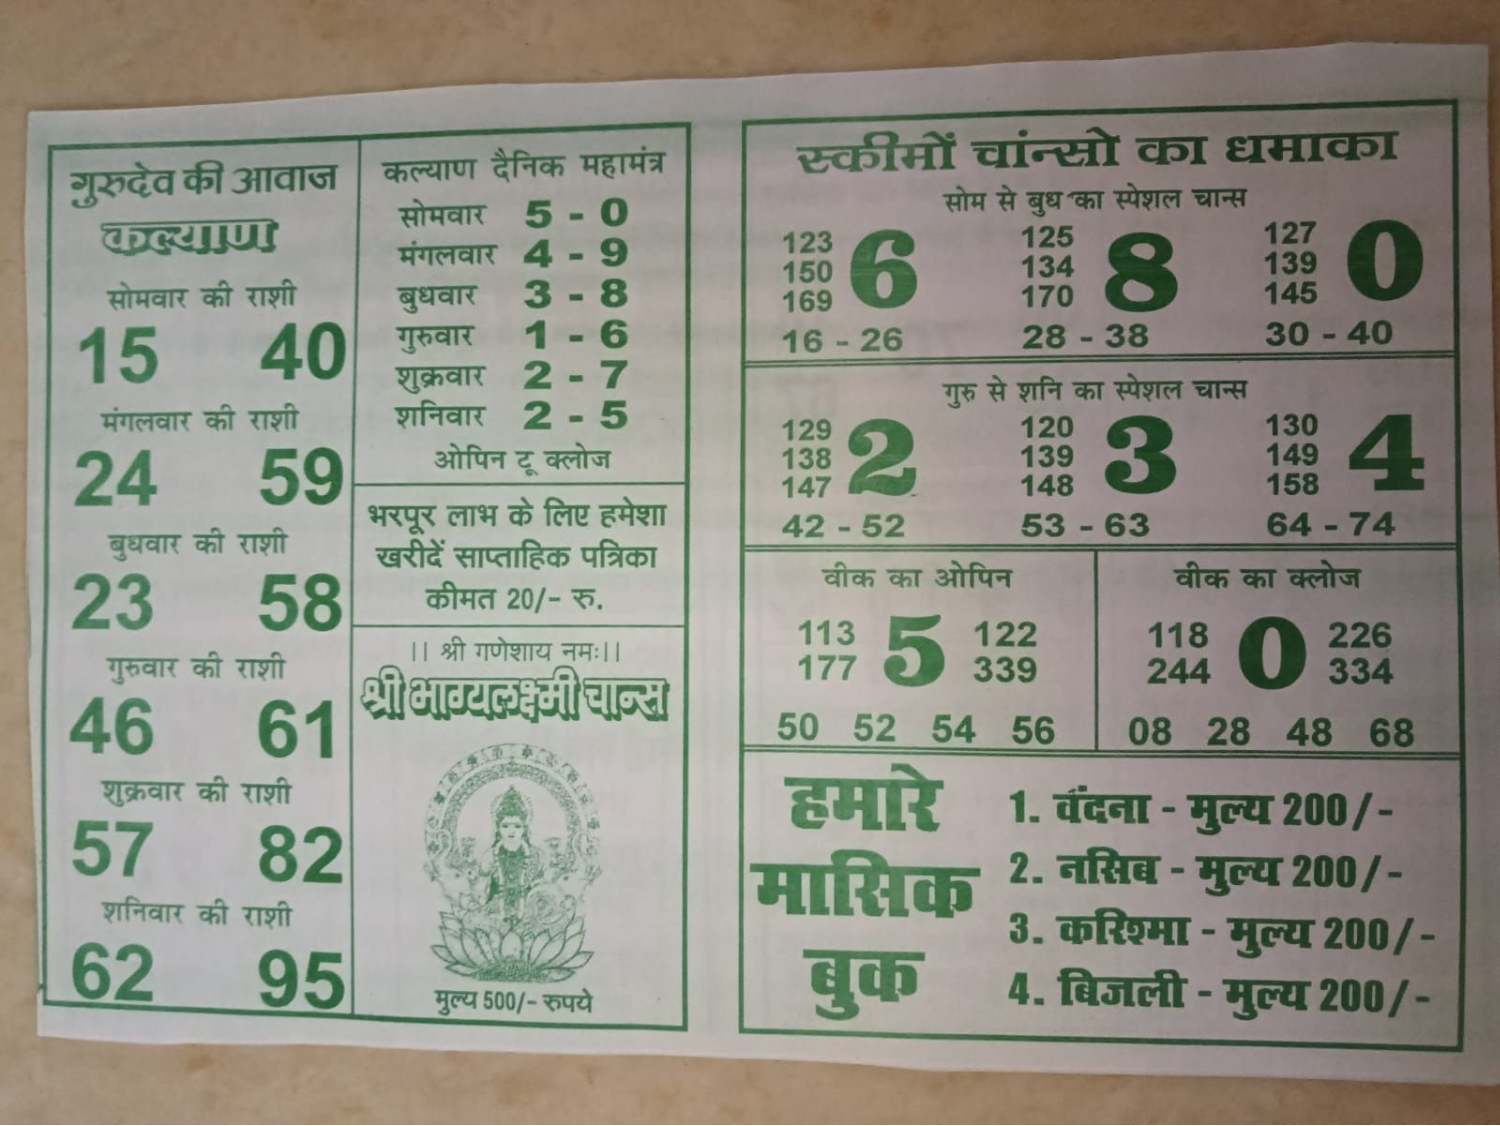 गुरुदेव की आवाज
कल्याण
सोमवार की राशी
15 40
मंगलवार की राशी
24 59
बुधवार की राशी
23 58
गुरुवार की राशी
46 61
शुक्रवार की राशी
57 82
शनिवार की राशी
62 95
कल्याण दैनिक महामंत्र
सोमवार 5 - 0
मंगलवार 4 - 9
बुधवार 3 - 8
गुरुवार 1 - 6
शुक्रवार 2 - 7
शनिवार 2 - 5
ओपिन टू क्लोज
भरपूर लाभ के लिए हमेशा
खरीदें साप्ताहिक पत्रिका
कीमत 20/- रु.
।। श्री गणेशाय नमः।।
श्री भाग्यलक्ष्मी चान्स
मुल्य 500/- रुपये
स्कीमों चांन्सो का धमाका
सोम से बुध का स्पेशल चान्स
123 150 169 6
16 - 26
125 134 170 8
28 - 38
127 139 145 0
30 - 40
गुरु से शनि का स्पेशल चान्स
129 138 147 2
42 - 52
120 139 148 3
53 - 63
130 149 158 4
64 - 74
वीक का ओपिन
113 177 5 122 339
50 52 54 56
वीक का क्लोज
118 244 0 226 334
08 28 48 68
हमारे
मासिक
बुक
1. वंदना - मुल्य 200/-
2. नसिब - मुल्य 200/-
3. करिश्मा - मुल्य 200/-
4. बिजली - मुल्य 200/-